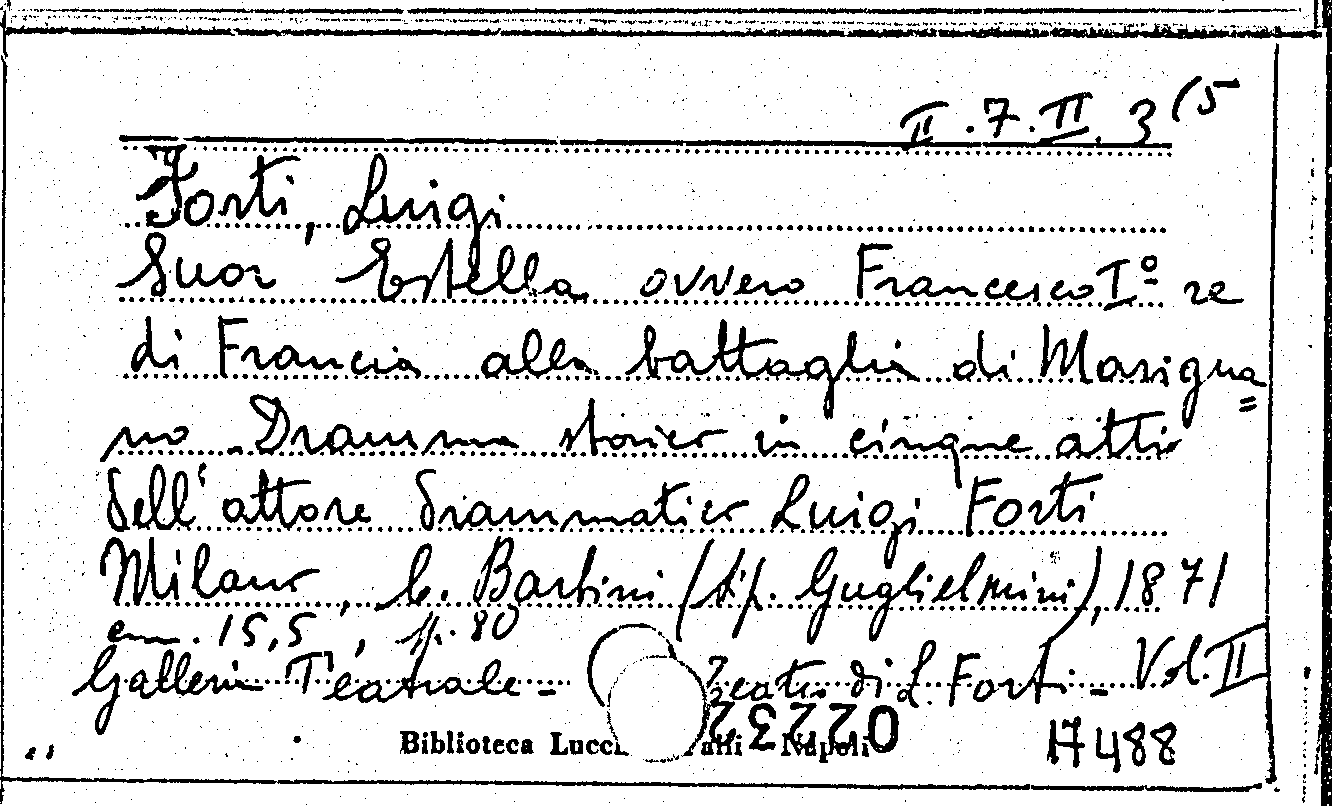 II.7.II.3(5
Forti, Luigi
Suor Estella ovvero Francesco I° re
di Francia alla battaglia di Marigna=
no. Dramma storico in cinque atti
dell'attore drammatico Luigi Forti
Milano, C. Barbini (tip. Guglielmini), 1871
cm. 15,5, pp. 80
Galleria Teatrale - Teatro di L. Forti - Vol. II
02232
Biblioteca Napoli
H488